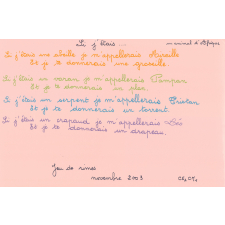 Si j'étais ...
un animal d'Afrique
Si j'étais une abeille je m'appellerais Mireille
Et je te donnerais une groseille.
Si j'étais un je m'appellerais
Et je te donnerais un
Si j'étais un serpent je m'appellerais Tristan
Et je te donnerais un torrent.
Si j'étais un crapaud je m'appellerais Léo
Et je te donnerais un drapeau.
Jeu de rimes
novembre 2003